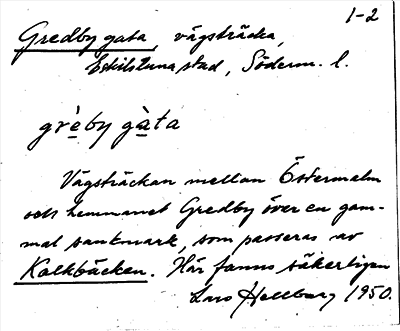 1-2
Gredby gata, vägsträcka,
Eskilstuna stad, Söderm. l.
grè̱by gà̱ta
Vägsträckan mellan Östermalm
och hemmanet Gredby över en gam-
mal sankmark, som passeras av
Kalkbäcken. Här fanns säkerligen
Lars Hellberg 1950.